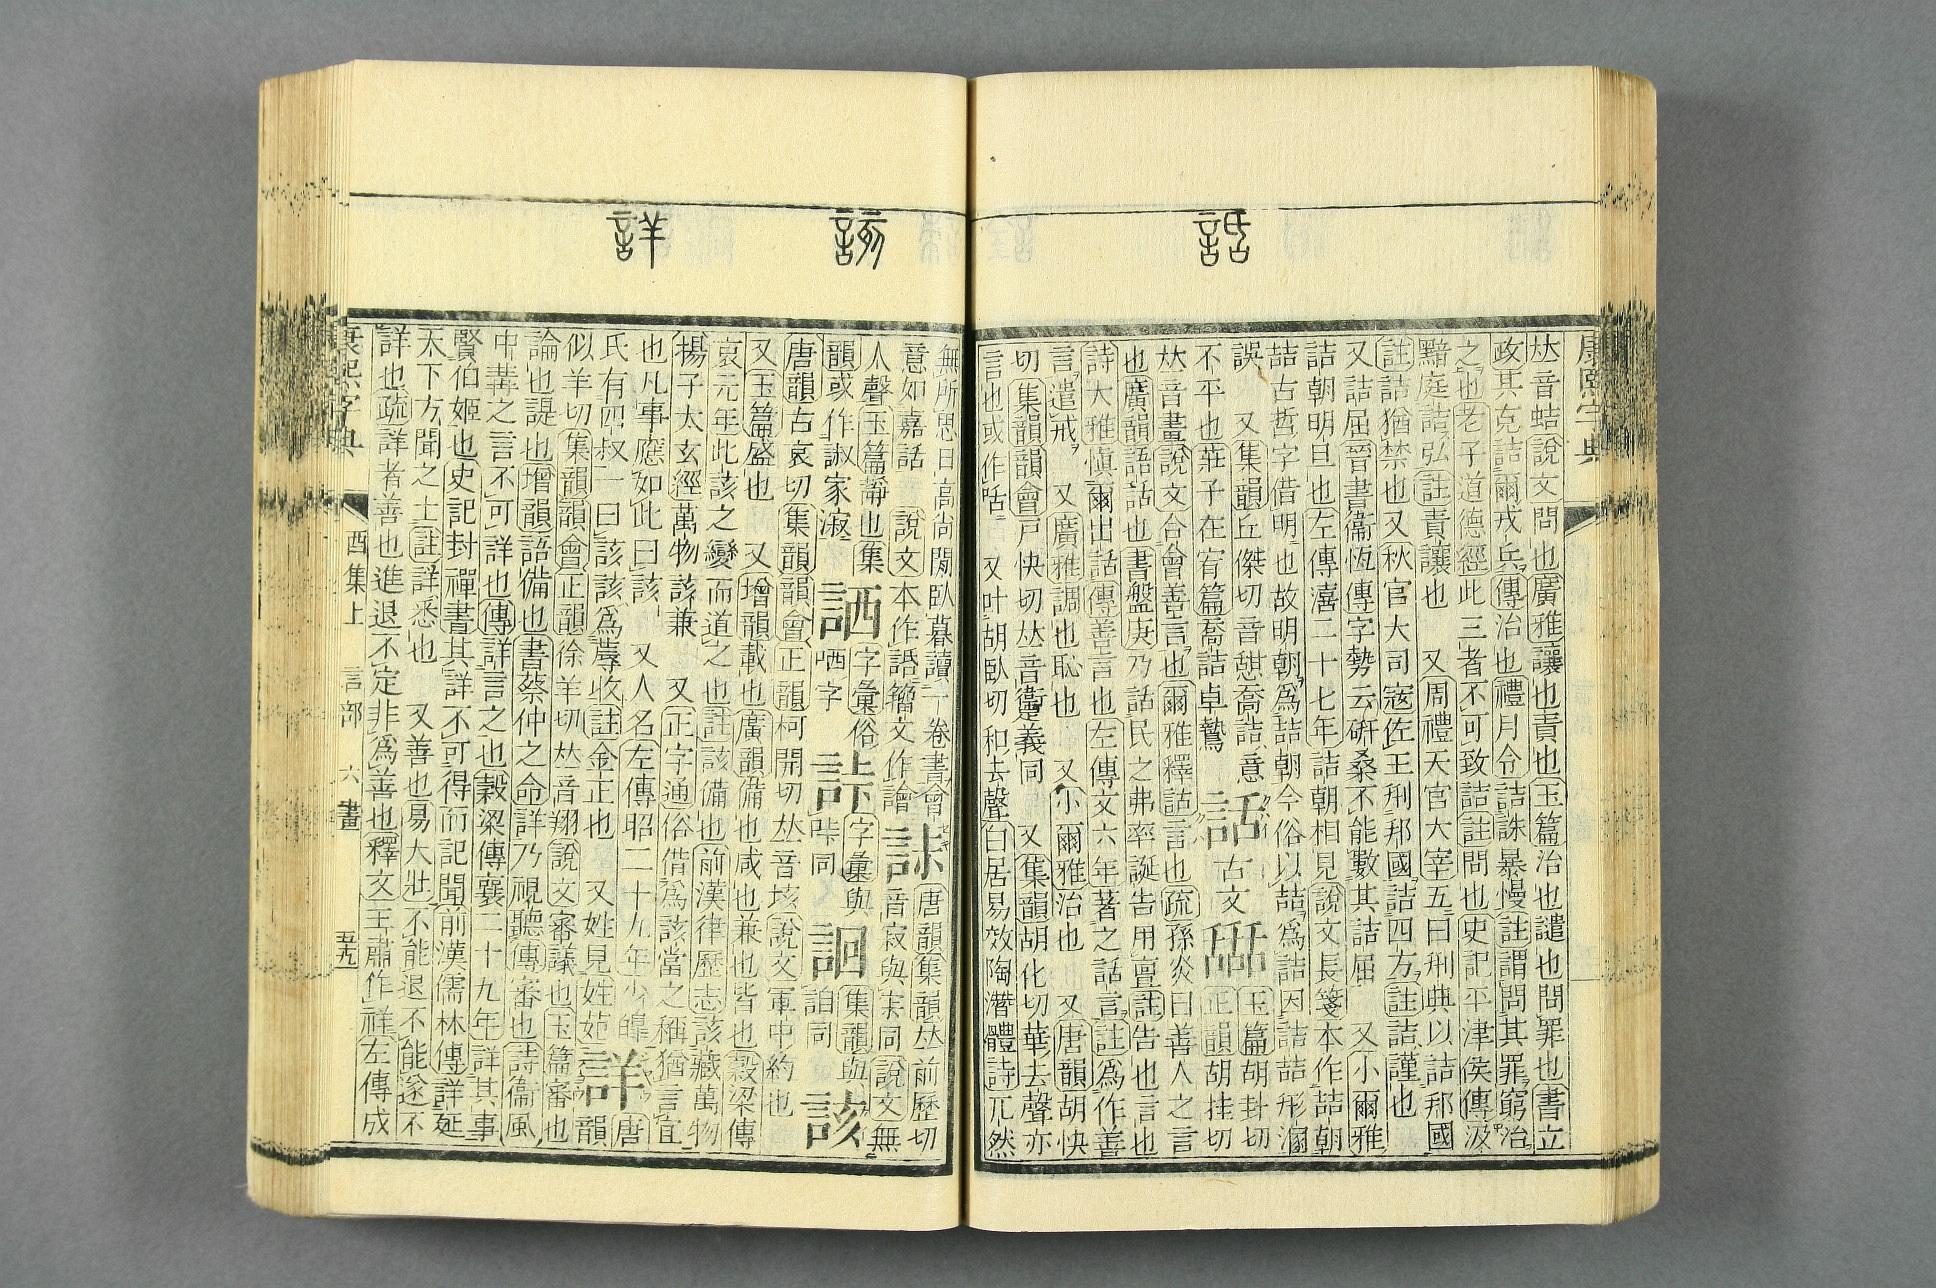 康熙字典
話
𠀤音蛣說文問也廣雅讓也責也玉篇治也譴也問罪也書立
政其克詰爾戎兵傳治也禮月令詰誅暴慢註謂問其罪窮治
之也老子道德經此三者不可致詰註問也史記平津侯傳汲
黯庭詰弘註責讓也 又周禮天官大宰五曰刑典以詰邦國
註詰猶禁也又秋官大司寇佐王刑邦國詰四方註詰謹也
又詰屈晉書衞恆傳字勢云硏桑不能數其詰屈 又小爾雅
詰朝明旦也左傳僖二十七年詰朝相見說文長箋本作喆朝
喆古哲字借明也故明朝爲喆朝今俗以詰爲喆因詰喆形溷
誤 又集韻丘傑切音憇喬詰意
不平也莊子在宥篇喬詰卓鷙
話 古文
玉篇胡卦切
正韻胡挂切
𠀤音畫說文合會善言也爾雅釋詁言也疏孫炎曰善人之言
也廣韻語話也書盤庚乃話民之弗率誕告用亶註告也言也
詩大雅愼爾出話傳善言也左傳文六年著之話言註爲作善
言遺戒 又廣雅調也恥也 又小爾雅治也 又唐韻胡快
切集韻韻會戸快切𠀤音躗義同 又集韻胡化切華去聲亦
言也或作咶 又叶胡臥切和去聲白居易效陶潛體詩兀然
該
詳
無所思日高尚閒臥暮讀一卷書會
意如嘉話 說文本作䛡籀文作譮
唐韻集韻𠀤前歷切
音寂與宋同說文無
人聲玉篇靜也集
韻或作諔家
字彙俗
哂字
字彙與
同
集韻與
詯同
該
唐韻古哀切集韻韻會正韻柯開切𠀤音垓說文軍中約也
又玉篇盛也 又增韻載也廣韻備也咸也兼也皆也穀梁傳
哀元年此該之變而道之也註該備也前漢律歷志該藏萬物
揚子太玄經萬物該兼 又正字通俗借爲該當之稱猶言宜
也凡事應如此曰該 又人名左傳昭二十九年少皥
氏有四叔一曰該該爲蓐收註金正也 又姓見姓苑
詳 唐韻
似羊切集韻韻會正韻徐羊切𠀤音翔說文審議也玉篇審也
論也諟也增韻語備也書蔡仲之命詳乃視聽傳審也詩衞風
中冓之言不可詳也傳詳言之也穀梁傳襄二十九年詳其事
賢伯姬也史記封禪書其詳不可得而記聞前漢儒林傳詳延
天下方聞之士註詳悉也 又善也易大壯不能退不能遂不
詳也疏詳者善也進退不定非爲善也釋文王肅作祥左傳成
康熙字典 酉集上 言部 六畫 五九